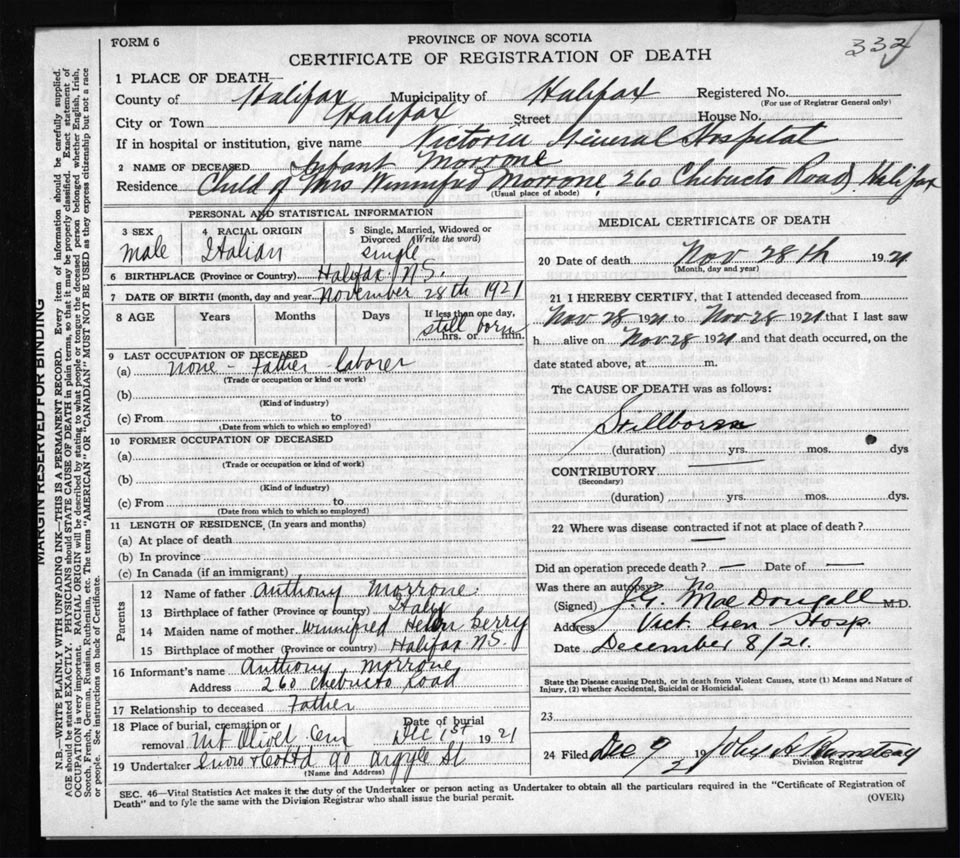 FORM 6
PROVINCE OF NOVA SCOTIA
332
CERTIFICATE OF REGISTRATION OF DEATH
1 PLACE OF DEATH
County of Halifax Municipality of Halifax Registered No.
(For use of Registrar General only)
City or Town Halifax Street House No.
If in hospital or institution, give name Victoria General Hospital
2 NAME OF DECEASED Infant Morrone
Residence Child of Mrs Winnifred Morrone, 260 Chebucto Road, Halifax
(Usual place of abode)
PERSONAL AND STATISTICAL INFORMATION
3 SEX 4 RACIAL ORIGIN 5 Single, Married, Widowed or
Divorced (Write the word)
male Italian single
6 BIRTHPLACE (Province or Country) Halifax N.S.
7 DATE OF BIRTH (month, day and year) November 28th 1921
8 AGE Years Months Days If less than one day,
still born
hrs. or min.
9 LAST OCCUPATION OF DECEASED
(a) none - Father - laborer
(Trade or occupation or kind or work)
(b)
(Kind of industry)
(c) From to
(Date from which to which so employed)
10 FORMER OCCUPATION OF DECEASED
(a)
(Trade or occupation or kind of work)
(b)
(Kind of industry)
(c) From to
(Date from which to which so employed)
11 LENGTH OF RESIDENCE, (In years and months)
(a) At place of death
(b) In province
(c) In Canada (if an immigrant)
Parents
12 Name of father Anthony Morrone
13 Birthplace of father (Province or country) Italy
14 Maiden name of mother Winnifred Helen Berry
15 Birthplace of mother (Province or country) Halifax NS
16 Informant's name Anthony Morrone
Address 260 Chebucto Road
17 Relationship to deceased Father
18 Place of burial, cremation or Date of burial
removal Mt Olivet Cem Dec 1st 1921
19 Undertaker Snow & Co Ltd 90 Argyle St
(Name and Address)
MEDICAL CERTIFICATE OF DEATH
20 Date of death Nov 28th 1921
(Month, day and year)
21 I HEREBY CERTIFY, that I attended deceased from
Nov 28 1921 to Nov 28 1921 that I last saw
h alive on Nov 28 1921 and that death occurred, on the
date stated above, at m.
The CAUSE OF DEATH was as follows:
Stillborn
(duration) yrs. mos. dys
CONTRIBUTORY
(Secondary)
(duration) yrs. mos. dys.
22 Where was disease contracted if not at place of death?
Did an operation precede death? — Date of —
Was there an autopsy? No
(Signed) MacDougall M.D.
Address Vict. Gen Hosp.
Date December 8/21.
State the Disease causing Death, or in death from Violent Causes, state (1) Means and Nature of
Injury, (2) whether Accidental, Suicidal or Homicidal.
23
24 Filed Dec 9 1921
Division Registrar
SEC. 46—Vital Statistics Act makes it the duty of the Undertaker or person acting as Undertaker to obtain all the particulars required in the "Certificate of Registration of
Death" and to fyle the same with the Division Registrar who shall issue the burial permit.
(OVER)
MARGIN RESERVED FOR BINDING
N.B.—WRITE PLAINLY WITH UNFADING INK—THIS IS A PERMANENT RECORD. Every item of information should be carefully supplied.
AGE should be stated EXACTLY. PHYSICIANS should STATE CAUSE OF DEATH in plain terms, so that it may be properly classified. Exact statement of
OCCUPATION is very important. RACIAL ORIGIN will be described by stating to what people or tongue the deceased person belonged whether English, Irish,
Scotch, French, German, Russian, Ruthenian, etc. The terms "AMERICAN" OR "CANADIAN" MUST NOT BE USED as they express citizenship but not a race
or people. See instructions on back of Certificate.